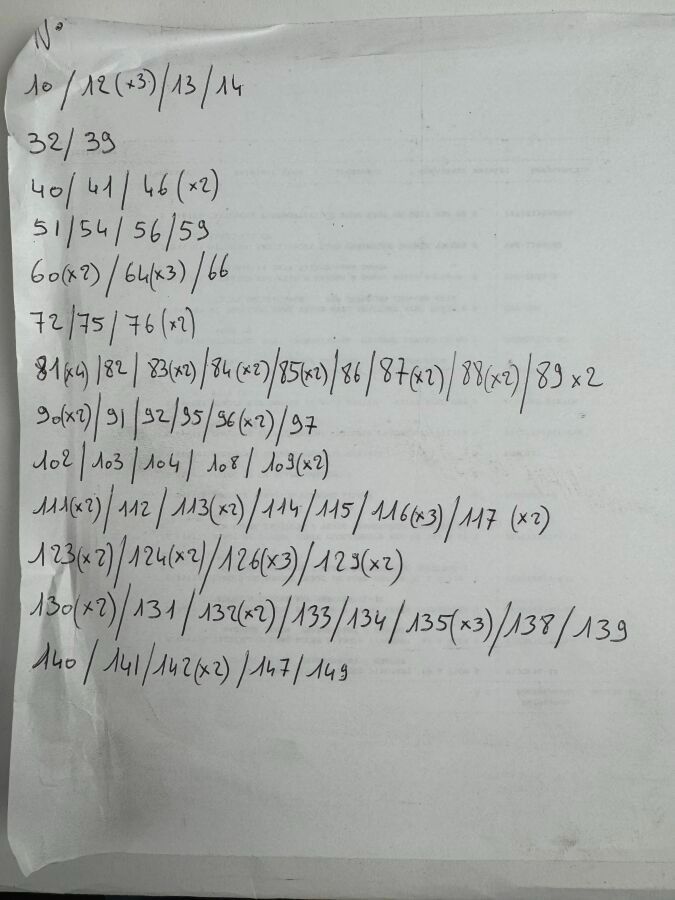 N°
10 / 12 (x3) / 13 / 14
32 / 39
40 / 41 / 46 (x2)
51 / 54 / 56 / 59
60(x2) / 64(x3) / 66
72 / 75 / 76 (x2)
81(x4) / 82 / 83(x2) / 84 (x2) / 85(x2) / 86 / 87(x2) / 88(x2) / 89 x2
90(x2) / 91 / 92 / 95 / 96(x2) / 97
102 / 103 / 104 / 108 / 109(x2)
111(x2) / 112 / 113(x2) / 114 / 115 / 116(x3) / 117 (x2)
123(x2) / 124(x2) / 126(x3) / 129(x2)
130(x2) / 131 / 132(x2) / 133 / 134 / 135(x3) / 138 / 139
140 / 141 / 142(x2) / 147 / 149